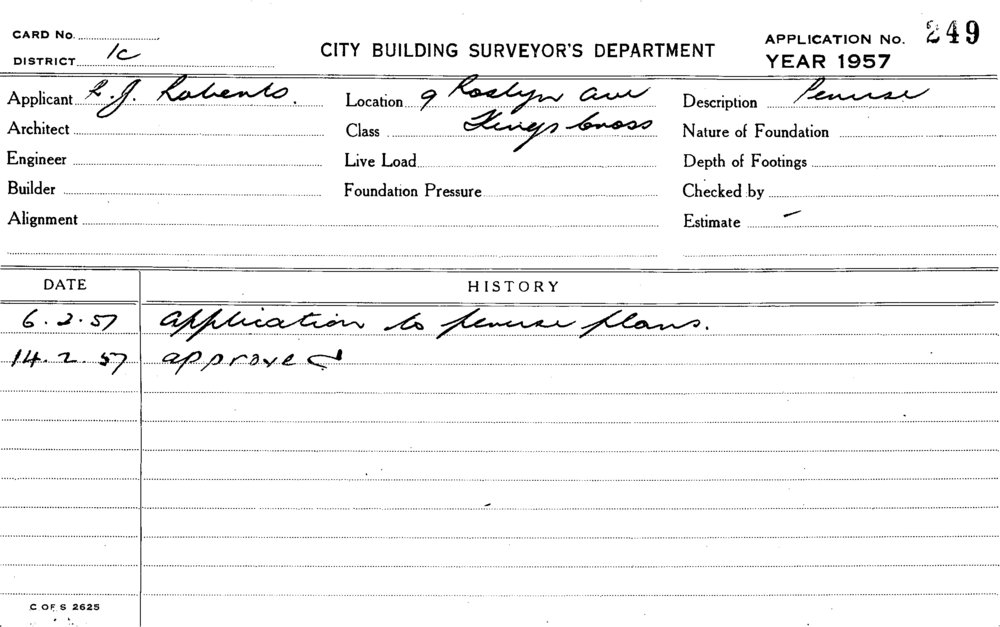 CARD No.
DISTRICT 1c
CITY BUILDING SURVEYOR'S DEPARTMENT
APPLICATION No. 249
YEAR 1957
Applicant R. J. Roberts. Location 9 Roslyn Ave Description Peruse
Architect Class Kings Cross Nature of Foundation
Engineer Live Load Depth of Footings
Builder Foundation Pressure Checked by
Alignment Estimate -
DATE HISTORY
6.2.57 Application to peruse plans.
14.2.57 approved
C OF S 2625